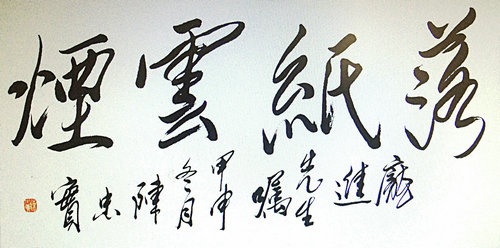 落紙雲煙
龐進
先生
囑
甲申
冬月
陳
忠
實